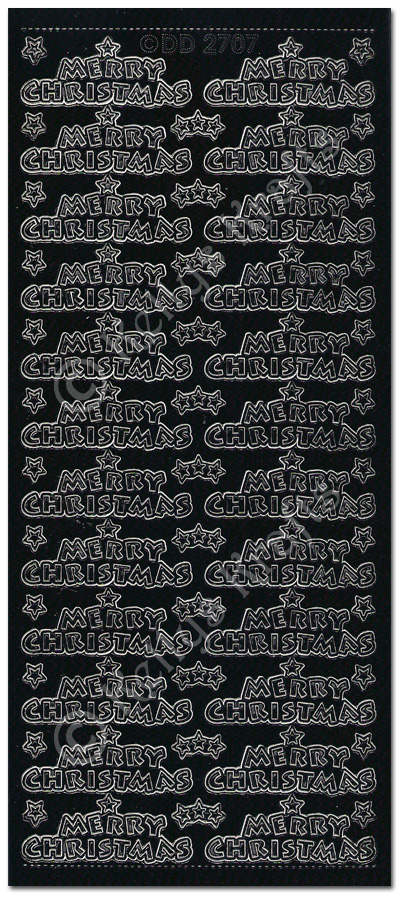 ©DD 2707
MERRY MERRY
CHRISTMAS CHRISTMAS
MERRY MERRY
CHRISTMAS CHRISTMAS
MERRY MERRY
CHRISTMAS CHRISTMAS
MERRY MERRY
CHRISTMAS CHRISTMAS
MERRY MERRY
CHRISTMAS CHRISTMAS
MERRY MERRY
CHRISTMAS CHRISTMAS
MERRY MERRY
CHRISTMAS CHRISTMAS
MERRY MERRY
CHRISTMAS CHRISTMAS
MERRY MERRY
CHRISTMAS CHRISTMAS
MERRY MERRY
CHRISTMAS CHRISTMAS
MERRY MERRY
CHRISTMAS CHRISTMAS
MERRY MERRY
CHRISTMAS CHRISTMAS